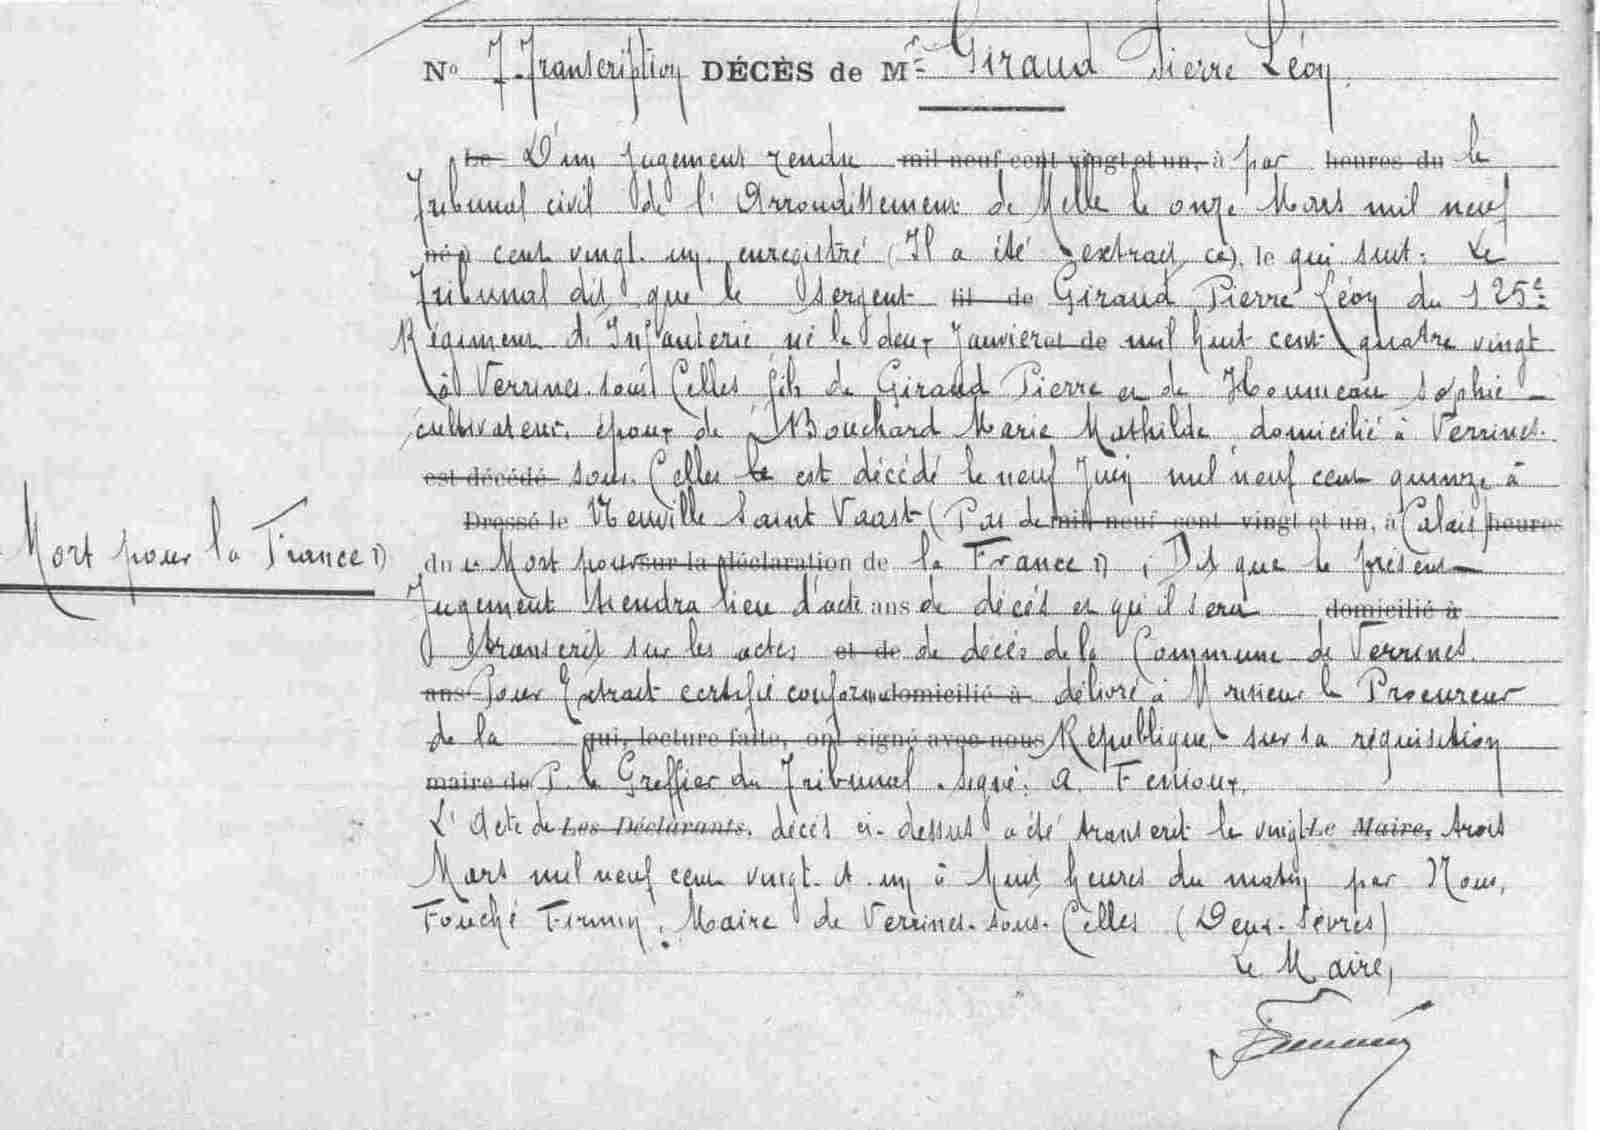 No 7 Transcription DÉCÈS de Mr Giraud Pierre Léon.
Le D'un jugement rendu mil neuf cent vingt et un, à par heures du le
Tribunal civil de l'Arrondissement de Melle le onze Mars mil neuf
né à cent vingt. un. enregistré (Il a été extrait ce). le qui suit: Le
Tribunal dit que le sergent fil de Giraud Pierre Léon du 125e
Régiment d'Infanterie né le deux Janvier et de mil huit cent quatre vingt
à Verrines. sous Celles fils de Giraud Pierre et de Houmeau Sophie
cultivateur. époux de Bouchard Marie Mathilde domicilié à Verrines.
est décédé sous. Celles le est décédé le neuf Juin mil neuf cent quinze à
Dressé le Neuville Saint Vaast (Pas de mil neuf cent vingt et un, à Calais) heures
du « Mort pour sur la déclaration de la France », Dit que le présent
Mort pour la France »
Jugement tiendra lieu d'acte ans de décès et qu'il sera domicilié à
transcrit sur les actes et de de décès de la Commune de Verrines.
ans Pour Extrait certifié conforme domicilié à délivré à Monsieur le Procureur
de la qui, lecture faite, ont signé avec nous République, sur sa réquisition
maire de P. le Greffier du Tribunal. signé: A. Fenioux.
L'Acte de Les Déclarants. décès ci-dessus a été transcrit le vingt Le Maire, trois
Mars mil neuf cent vingt. et. un à huit heures du matin par Nous,
Fouché Firmin, Maire de Verrines-sous-Celles (Deux-Sèvres)
Le Maire,